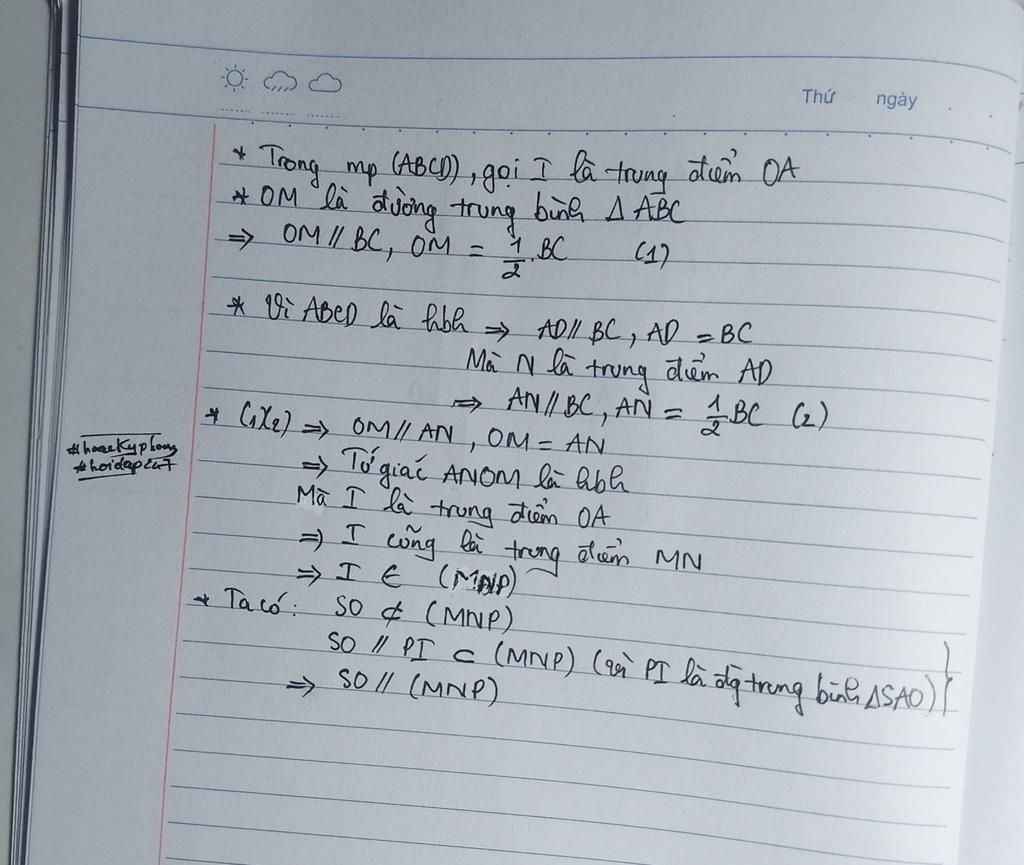 Thứ ngày
* Trong mp (ABCD), gọi I là trung điểm OA
* OM là đường trung bình Δ ABC
⇒ OM // BC, OM = 1/2.BC (1)
* Vì ABCD là hbh ⇒ AD // BC, AD = BC
Mà N là trung điểm AD
⇒ AN // BC, AN = 1/2 BC (2)
* (1)(2) ⇒ OM // AN, OM = AN
⇒ Tứ giác ANOM là hbh
Mà I là trung điểm OA
⇒ I cũng là trung điểm MN
⇒ I ∈ (MNP)
* Ta có: SO ⊄ (MNP)
SO // PI ⊂ (MNP) (vì PI là đg trung bình ΔSAO) }
⇒ SO // (MNP)
#hoidap247